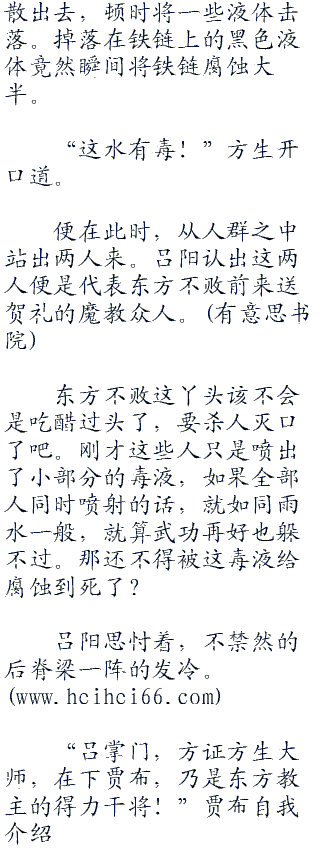 散出去，顿时将一些液体击
落。掉落在铁链上的黑色液
体竟然瞬间将铁链腐蚀大
半。
“这水有毒！”方生开
口道。
便在此时，从人群之中
站出两人来。吕阳认出这两
人便是代表东方不败前来送
贺礼的魔教众人。(有意思书
院)
东方不败这丫头该不会
是吃醋过头了，要杀人灭口
了吧。刚才这些人只是喷出
了小部分的毒液，如果全部
人同时喷射的话，就如同雨
水一般，就算武功再好也躲
不过。那还不得被这毒液给
腐蚀到死了？
吕阳思忖着，不禁然的
后脊梁一阵的发冷。
(www.hcihci66.com)
“吕掌门，方证方生大
师，在下贾布，乃是东方教
主的得力干将！”贾布自我
介绍